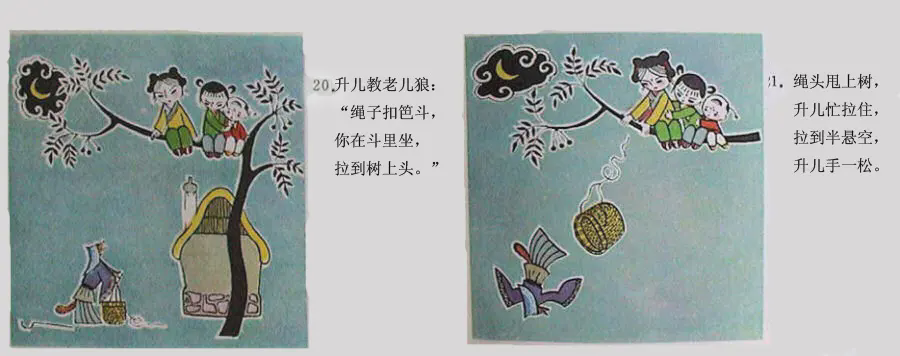 20.升儿教老儿狼：
“绳子扣笆斗，
你在斗里坐，
拉到树上头。”
21.绳头甩上树，
升儿忙拉住，
拉到半悬空，
升儿手一松。